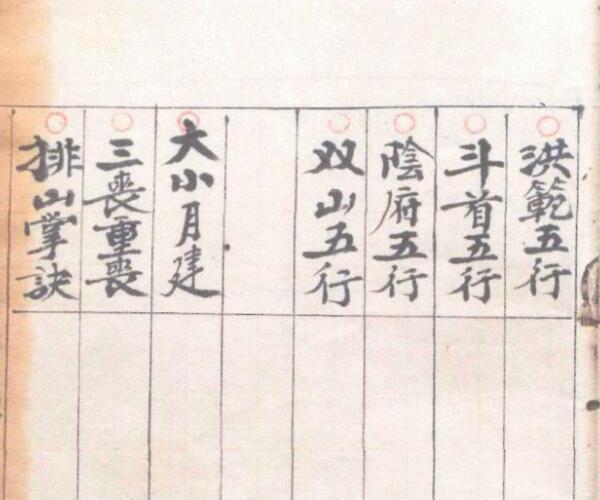 洪範五行
斗首五行
陰府五行
双山五行
大小月建
三喪重喪
排山掌訣